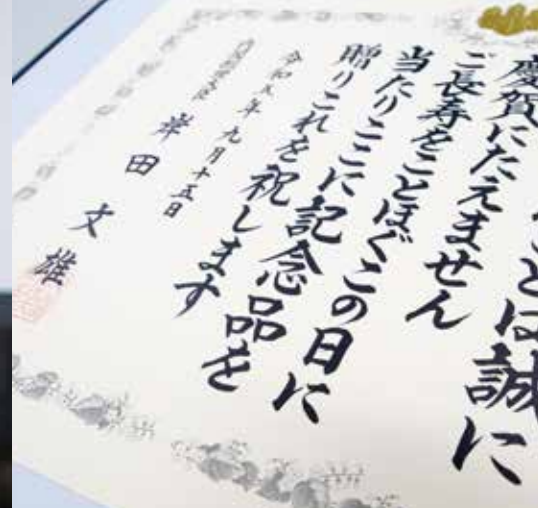 ことは誠に
慶賀にたえません
ご長寿をことほぐこの日に
当たりここに記念品を
贈りこれを祝します
令和五年九月十五日
内閣総理大臣
岸田文雄